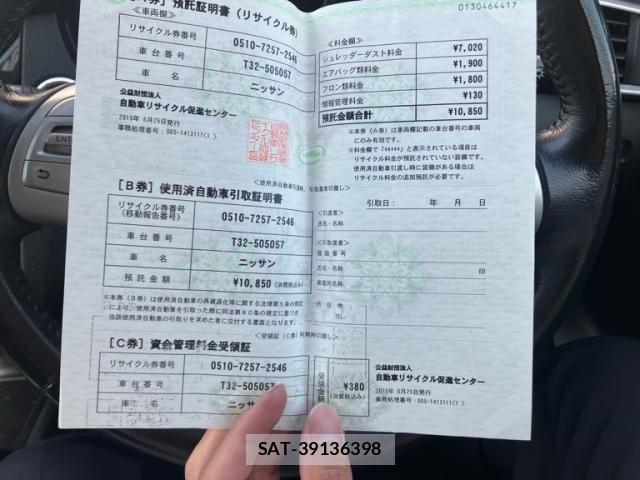 【A券】預託証明書(リサイクル券)
0130464417
≪車両欄≫
リサイクル券番号 0510-7257-2546
車台番号 T32-505057
車 名 ニッサン
公益財団法人
自動車リサイクル促進センター
2015年 6月25日発行
事務処理番号:005-1413111(1)
≪料金欄≫
シュレッダーダスト料金 ¥7,020
エアバッグ類料金 ¥1,900
フロン類料金 ¥1,800
情報管理料金 ¥130
預託金額合計 ¥10,850
※本券(A券)は車両欄記載の車台番号の車両
にのみ有効です。
※料金欄で「*****」と表示されている項目は
リサイクル料金が預託されていない装備です。
使用済自動車引渡し時に装備がある場合は
リサイクル料金の追加預託が必要です。
[B券] 使用済自動車引取証明書
リサイクル券番号
(移動報告番号) 0510-7257-2546
車台番号 T32-505057
車 名 ニッサン
預託金額 ¥10,850 (消費税込み)
引取日: 年 月 日
<引渡者>
氏名・名称
<引取業者>
登録番号
氏名・名称 印
事業所名称
所在地
TEL
※本券(B券)は使用済自動車の再資源化等に関する法律第9条の規定
により、使用済自動車を引取った際に同法第80条の規定に基づき
当該使用済自動車の引取りを求めた者に交付する書面となります。
[C券] 資金管理料金受領証
リサイクル券番号 0510-7257-2546
車台番号 T32-505057
車 名 ニッサン
受領金額 ¥380
(消費税込み)
公益財団法人
自動車リサイクル促進センター
2015年 6月25日発行
事務処理番号:005-1413111(1)
SAT-39136398